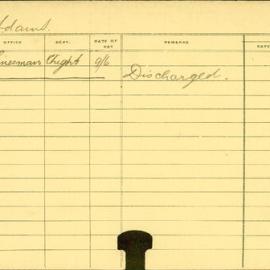 Adams.
OFFICE DEPT. RATE OF PAY REMARKS DATE
Lineman Light 9/6 Discharged.